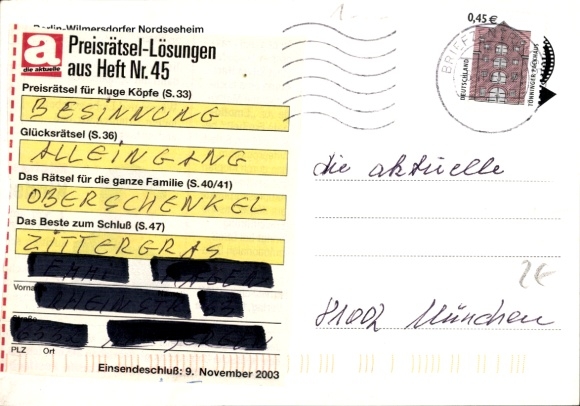 Berlin-Wilmersdorfer Nordseeheim
a
die aktuelle
Preisrätsel-Lösungen
aus Heft Nr. 45
Preisrätsel für kluge Köpfe (S. 33)
BESINNUNG
Glücksrätsel (S.36)
ALLEINGANG
Das Rätsel für die ganze Familie (S. 40/41)
OBERSCHENKEL
Das Beste zum Schluß (S.47)
ZITTERGRAS
PLZ Ort
Einsendeschluß: 9. November 2003
0,45 €
DEUTSCHLAND
TÖNNINGER PACKHAUS
BRIEFZEN
die aktuelle
2€
81002 München